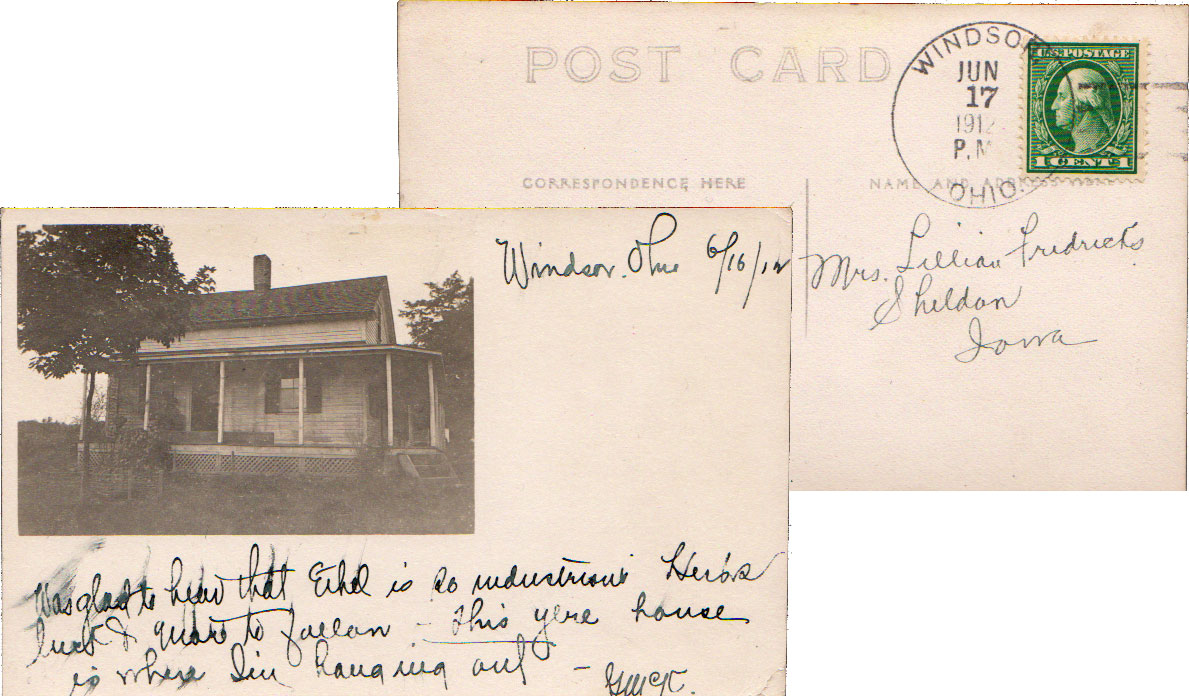 POST CARD
WINDSOR
JUN
17
1912
P.M
OHIO.
U.S. POSTAGE
1 CENT 1
CORRESPONDENCE HERE
NAME AND ADDRESS HERE
Mrs. Lillian Fredricks
Sheldon
Iowa
Windsor. Ohio 6/16/12
Was glad to hear that Ethel is so industrious
luck & to – This yere house
is where I'm hanging out –